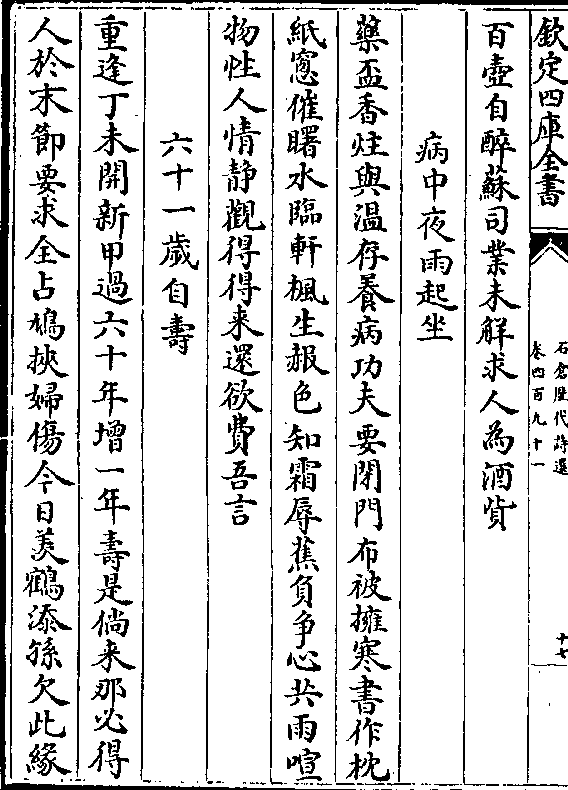 欽定四庫全書
石倉歷代詩選
卷四百九十一
十七
百壺自醉蘇司業未解求人為酒貲
病中夜雨起坐
藥盃香炷與温存養病功夫要閉門布被擁寒書作枕
紙窓催曙水臨軒楓生赧色知霜辱蕉負争心共雨喧
物性人情静觀得得来還欲費吾言
六十一歲自壽
重逢丁未開新甲過六十年增一年壽是倘来那必得
人於末節要求全占鳩挾婦傷今日羙鶴添孫欠此緣